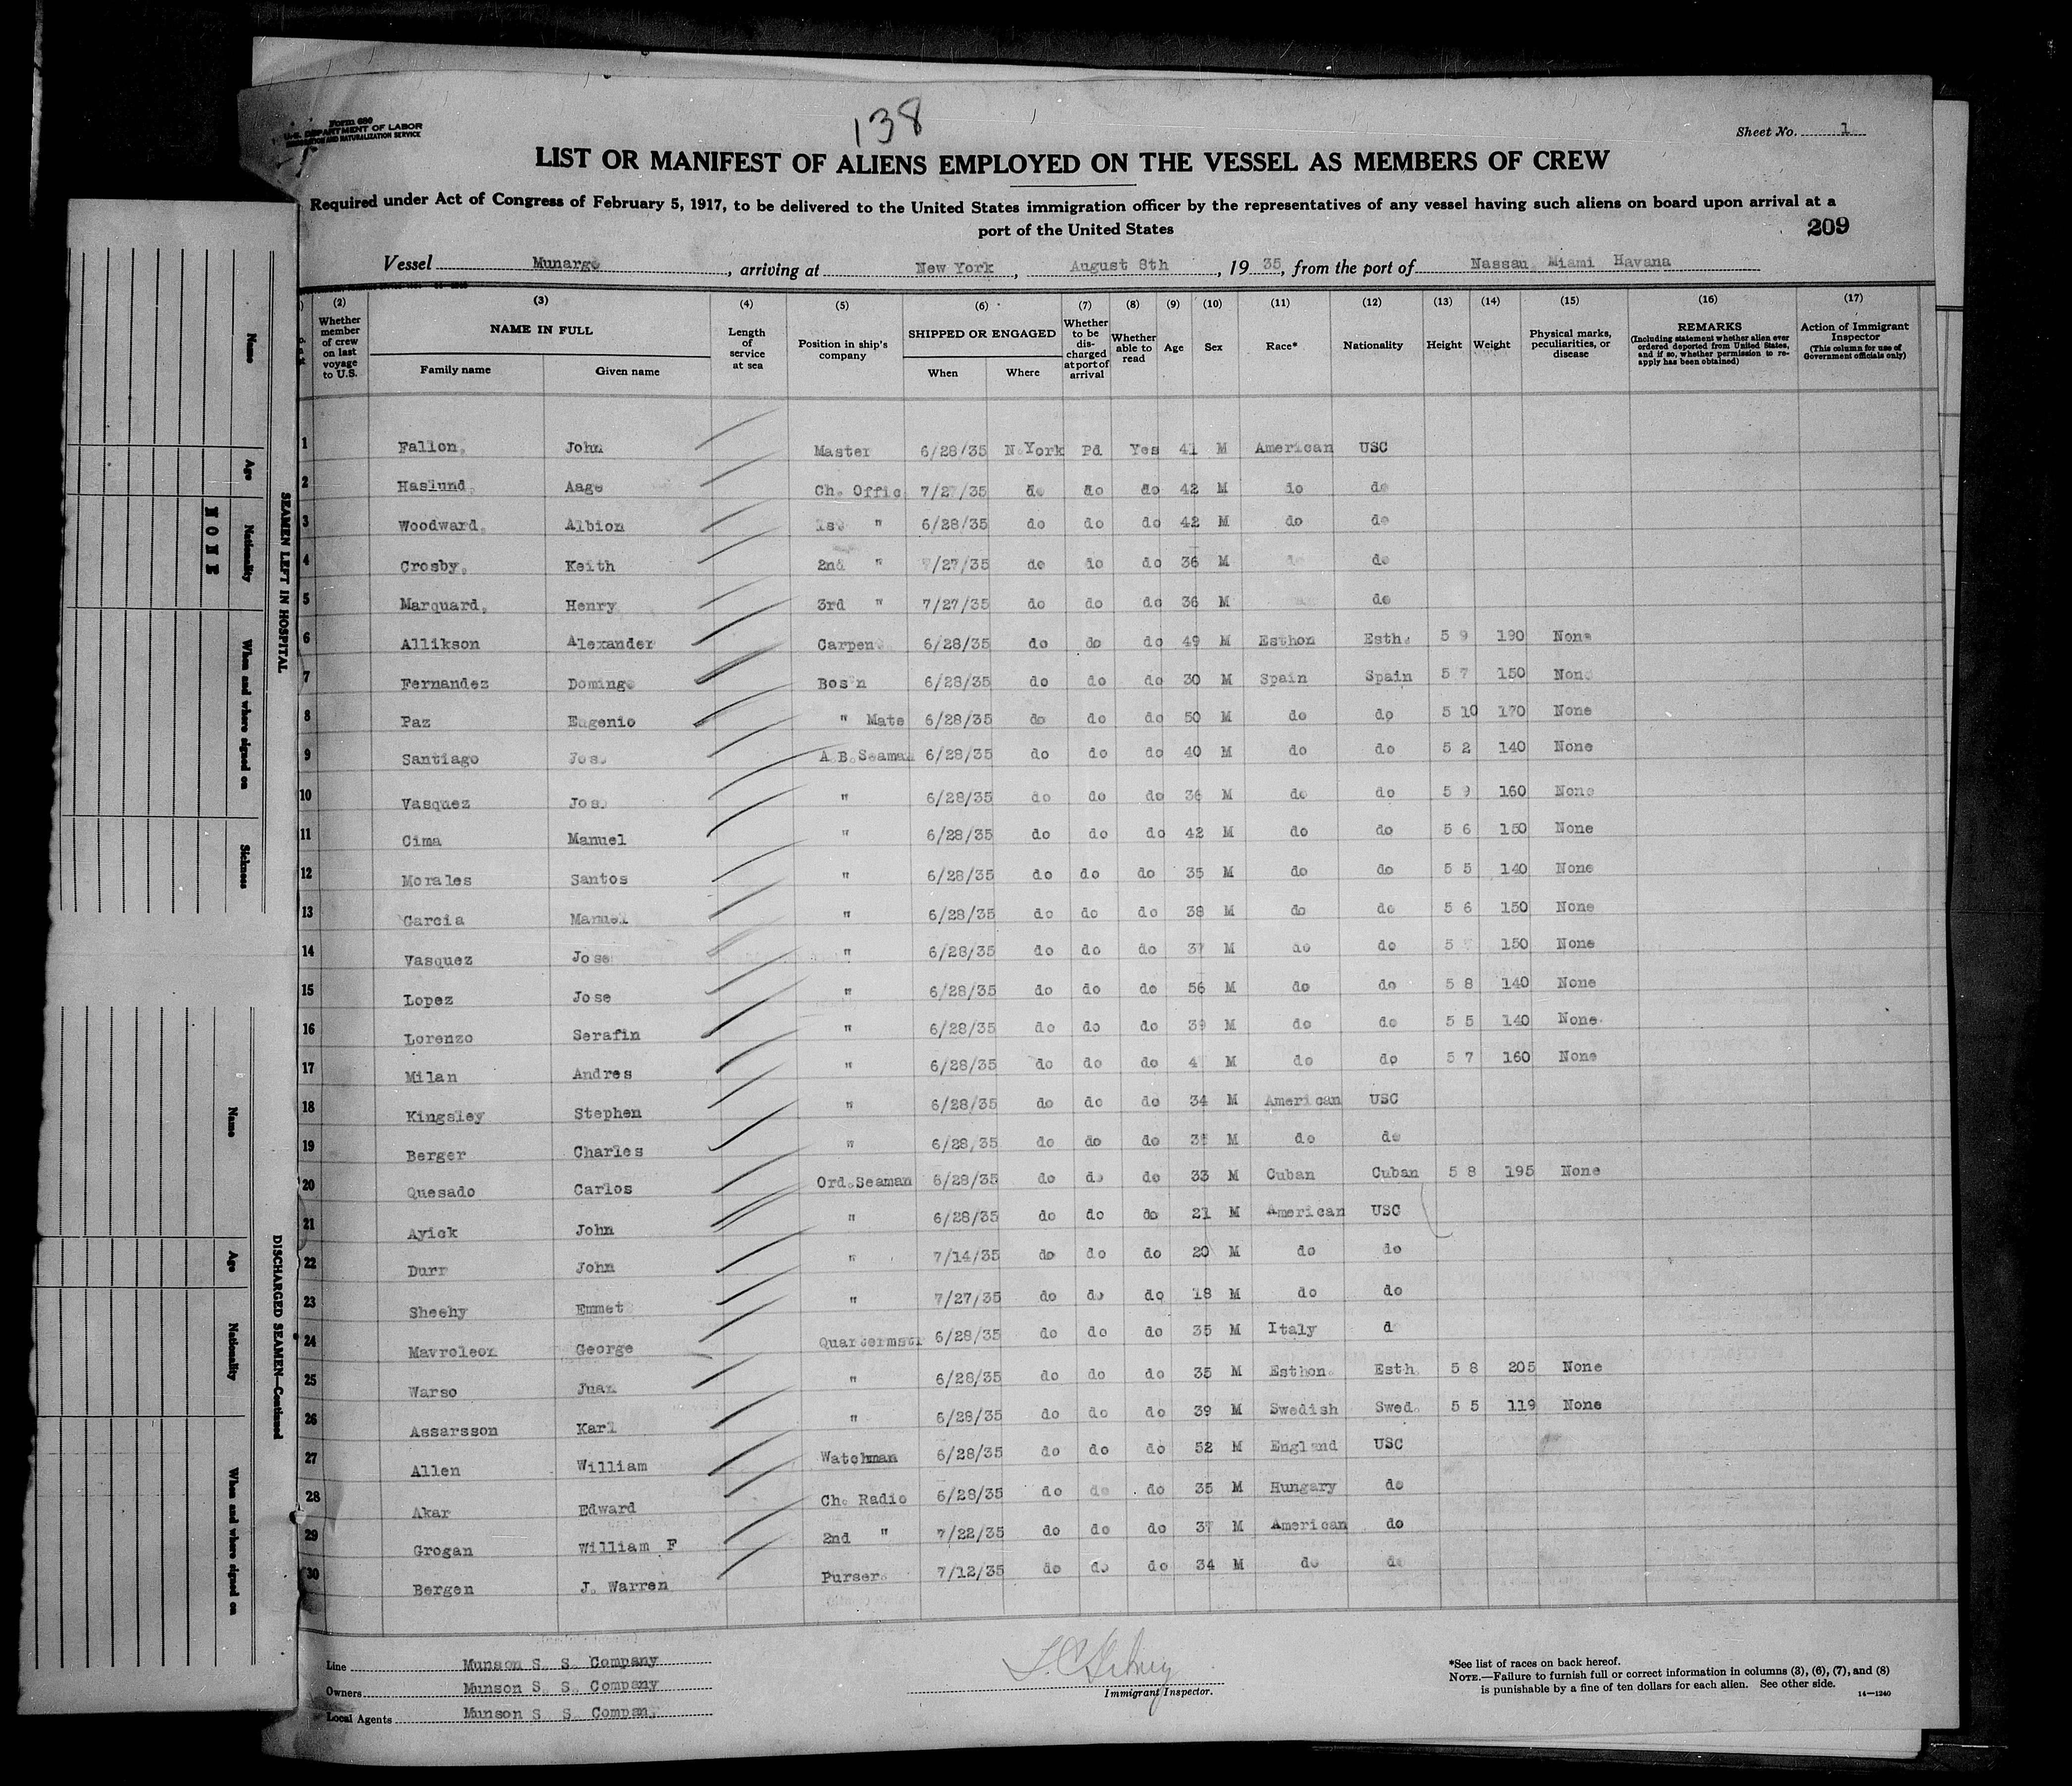 138
Form 680
U.S. DEPARTMENT OF LABOR
IMMIGRATION AND NATURALIZATION SERVICE
Sheet No. 1
LIST OR MANIFEST OF ALIENS EMPLOYED ON THE VESSEL AS MEMBERS OF CREW
Required under Act of Congress of February 5, 1917, to be delivered to the United States immigration officer by the representatives of any vessel having such aliens on board upon arrival at a
port of the United States
209
Vessel Munargo, arriving at New York, August 8th, 19 35, from the port of Nassau Miami Havana
(2) (3) (4) (5) (6) (7) (8) (9) (10) (11) (12) (13) (14) (15) (16) (17)
Whether member of crew on last voyage to U.S. NAME IN FULL Family name Given name Length of service at sea Position in ship's company SHIPPED OR ENGAGED When Where Whether to be discharged at port of arrival Whether able to read Age Sex Race* Nationality Height Weight Physical marks, peculiarities, or disease REMARKS (Including statement whether alien ever ordered deported from United States, and if so, whether permission to reapply has been obtained) Action of Immigrant Inspector (This column for use of Government officials only)
1 Fallon, John Master 6/28/35 N.York Pd Yes 41 M American USC
2 Haslund, Aage Ch. Offic 7/27/35 do do do 42 M do do
3 Woodward, Albion 1st " 6/28/35 do do do 42 M do do
4 Crosby, Keith 2nd " 7/27/35 do do do 36 M do do
5 Marquard, Henry 3rd " 7/27/35 do do do 36 M do
6 Allikson Alexander Carpen 6/28/35 do do do 49 M Esthon Esth. 5 9 190 None
7 Fernandez Domingo Bos'n 6/28/35 do do do 30 M Spain Spain 5 7 150 None
8 Paz Eugenio " Mate 6/28/35 do do do 50 M do do 5 10 170 None
9 Santiago Jos. A.B.Seaman 6/28/35 do do do 40 M do do 5 2 140 None
10 Vasquez Jos. " 6/28/35 do do do 36 M do do 5 9 160 None
11 Cima Manuel " 6/28/35 do do do 42 M do do 5 6 150 None
12 Morales Santos " 6/28/35 do do do 35 M do do 5 5 140 None
13 Garcia Manuel " 6/28/35 do do do 38 M do do 5 6 150 None
14 Vasquez Jose " 6/28/35 do do do 37 M do do 5 150 None
15 Lopez Jose " 6/28/35 do do do 56 M do do 5 8 140 None
16 Lorenzo Serafin " 6/28/35 do do do 39 M do do 5 5 140 None
17 Milan Andres " 6/28/35 do do do 4 M do do 5 7 160 None
18 Kingsley Stephen " 6/28/35 do do do 34 M American USC
19 Berger Charles " 6/28/35 do do do M do do
20 Quesado Carlos Ord.Seaman 6/28/35 do do do 33 M Cuban Cuban 5 8 195 None
21 Ayick John " 6/28/35 do do do 21 M American USC
22 Durr John " 7/14/35 do do do 20 M do do
23 Sheehy Emmet " 7/27/35 do do do 18 M do do
24 Mavroleon George Quartermstr 6/28/35 do do do 35 M Italy d
25 Warso Juan " 6/28/35 do do do 35 M Esthon. Esth. 5 8 205 None
26 Assarsson Karl " 6/28/35 do do do 39 M Swedish Swed. 5 5 119 None
27 Allen William Watchman 6/28/35 do do do 52 M England USC
28 Akar Edward Ch. Radio 6/28/35 do do do 35 M Hungary do
29 Grogan William F 2nd " 7/22/35 do do do 37 M American do
30 Bergen J. Warren Purser. 7/12/35 do do do 34 M do do
Line Munson S. S. Company
Owners Munson S. S. Company
Local Agents Munson S S Company
Immigrant Inspector.
*See list of races on back hereof.
NOTE.—Failure to furnish full or correct information in columns (3), (6), (7), and (8)
is punishable by a fine of ten dollars for each alien. See other side.
14—1240
SEAMEN LEFT IN HOSPITAL
Name Age Nationality When and where signed on Sickness
NONE
DISCHARGED SEAMEN—Continued
Name Age Nationality When and where signed on